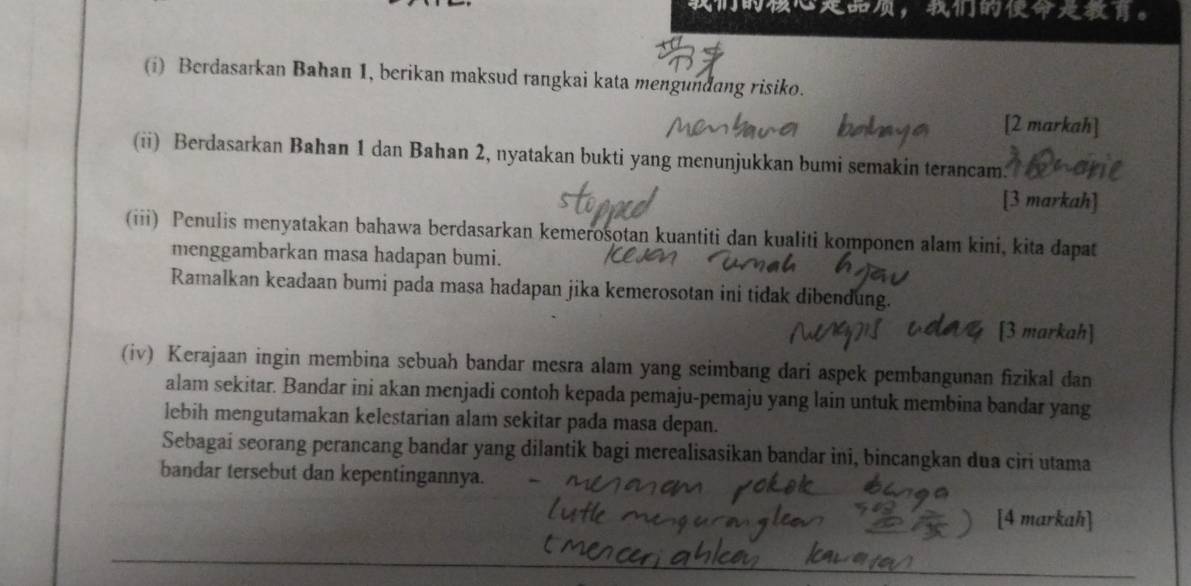 我们的核心是品质，我们的使命是教育。
带来
(i) Berdasarkan Bahan 1, berikan maksud rangkai kata mengundang risiko.
Membawa bahaya [2 markah]
(ii) Berdasarkan Bahan 1 dan Bahan 2, nyatakan bukti yang menunjukkan bumi semakin terancam.
stopped [3 markah]
(iii) Penulis menyatakan bahawa berdasarkan kemerosotan kuantiti dan kualiti komponen alam kini, kita dapat
menggambarkan masa hadapan bumi. kesan rumah hijau
Ramalkan keadaan bumi pada masa hadapan jika kemerosotan ini tidak dibendung.
[3 markah]
(iv) Kerajaan ingin membina sebuah bandar mesra alam yang seimbang dari aspek pembangunan fizikal dan
alam sekitar. Bandar ini akan menjadi contoh kepada pemaju-pemaju yang lain untuk membina bandar yang
lebih mengutamakan kelestarian alam sekitar pada masa depan.
Sebagai seorang perancang bandar yang dilantik bagi merealisasikan bandar ini, bincangkan dua ciri utama
bandar tersebut dan kepentingannya. - menanam pokok bunga
mengurangkan 温度) [4 markah]
(menceriahkan kawasan